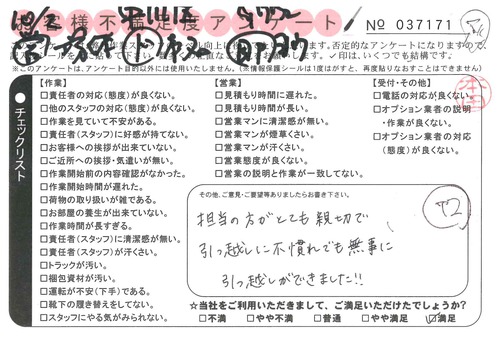 お客様不満足度アンケート
No 037171
【作業】
□責任者の対応(態度)が良くない。
□他のスタッフの対応(態度)が良くない。
□作業を見ていて不安がある。
□責任者(スタッフ)に好感が持てない。
□お客様への挨拶が出来ていない。
□ご近所への挨拶・気遣いが無い。
□作業開始前の内容確認がなかった。
□作業開始時間が遅れた。
□荷物の取り扱いが雑である。
□お部屋の養生が出来ていない。
□作業時間が長すぎる。
□責任者(スタッフ)に清潔感が無い。
□責任者(スタッフ)が汗くさい。
□トラックが汚い。
□梱包資材が汚い。
□運転が不安(下手)である。
□靴下の履き替えをしてない。
□スタッフにやる気がみられない。
【営業】
□見積もり時間に遅れた。
□見積もり時間が長い。
□営業マンに清潔感が無い。
□営業マンが煙草くさい。
□営業マンが汗くさい。
□営業態度が良くない。
□営業の説明と作業が一致してない。
【受付・その他】
□電話の対応が良くない。
□オプション業者の説明
・作業が良くない。
□オプション業者の対応
(態度)が良くない。
チェックリスト
その他、ご意見・ご要望等ありましたらお書き下さい。
担当の方がとても親切で
引っ越しに不慣れでも無事に
引っ越しができました!!
☆当社をご利用いただきまして、ご満足いただけたでしょうか?
□不満 □やや不満 □普通 □やや満足 ☑満足